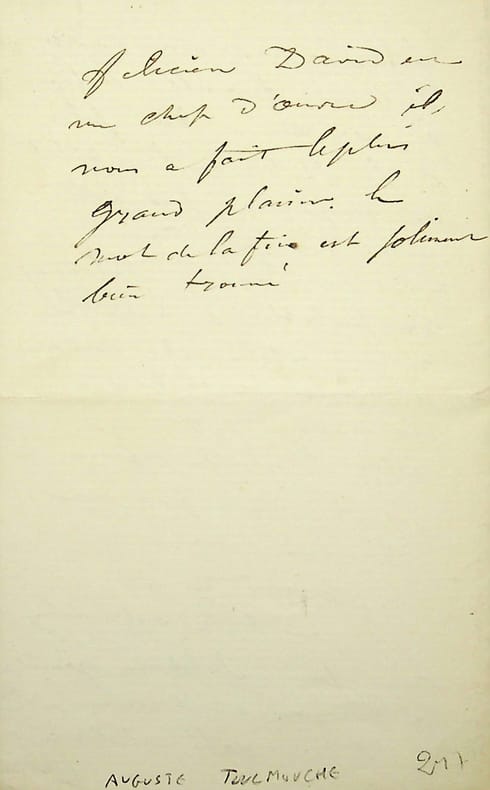 Félicien David est
un chef d'œuvre il
nous a fait le plus
grand plaisir. le
mot de la fin est joliment
bien trouvé
AUGUSTE TOULMOUCHE